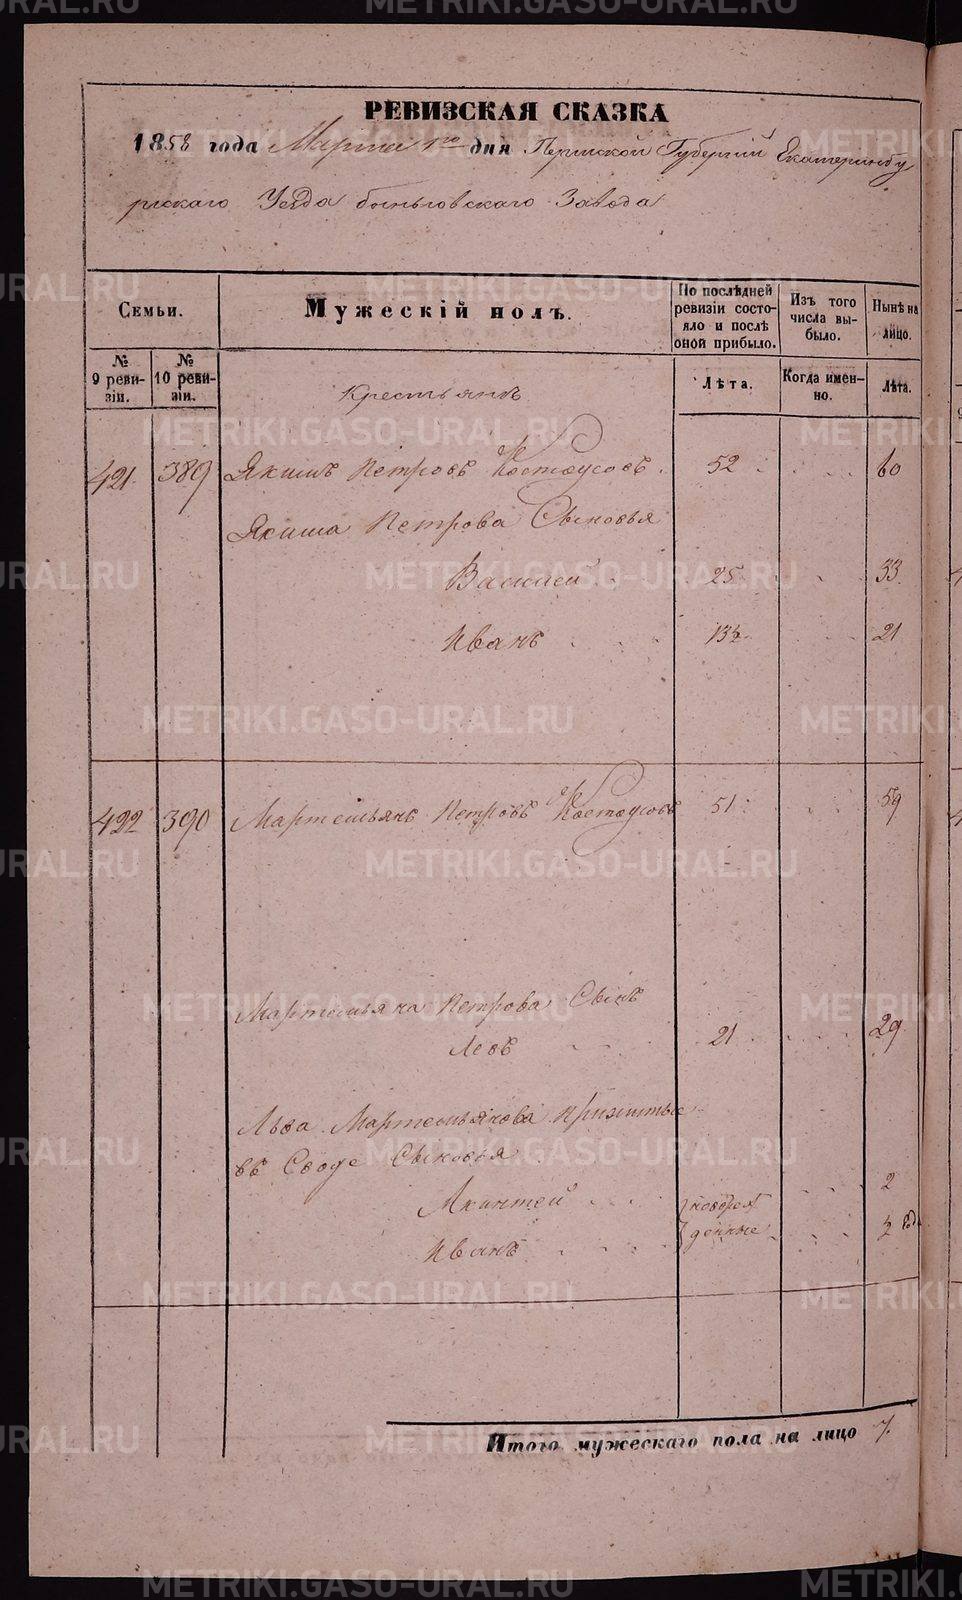 РЕВИЗСКАЯ СКАЗКА
1858 года Марта 1го дня Пермской Губерніи Екатеринбу
ргскаго Уезда быньговскаго Завода
Семьи.
Мужескій полъ.
По послѣдней ревизіи состояло и послѣ оной прибыло.
Изъ того числа выбыло.
Нынѣ на лицо.
№ 9 ревизіи.
№ 10 ревизіи.
Лѣта.
Когда именно.
Лѣта.
Крестьянъ
421. 389 Якимъ Петровъ Костоусовъ. 52 60
Якима Петрова Сыновья
Василей 25 33.
Иванъ 13½ 21
422 390 Мартемьянъ Петровъ Костоусовъ 51 59
Мартемьяна Петрова Сынъ
Левъ 21 29.
Льва Мартемьянова прижитые
въ Сводѣ Сыновья
Акинтей новорож 2
Иванъ денные ½ год.
Итого мужескаго пола на лицо 7.
METRIKI.GASO-URAL.RU